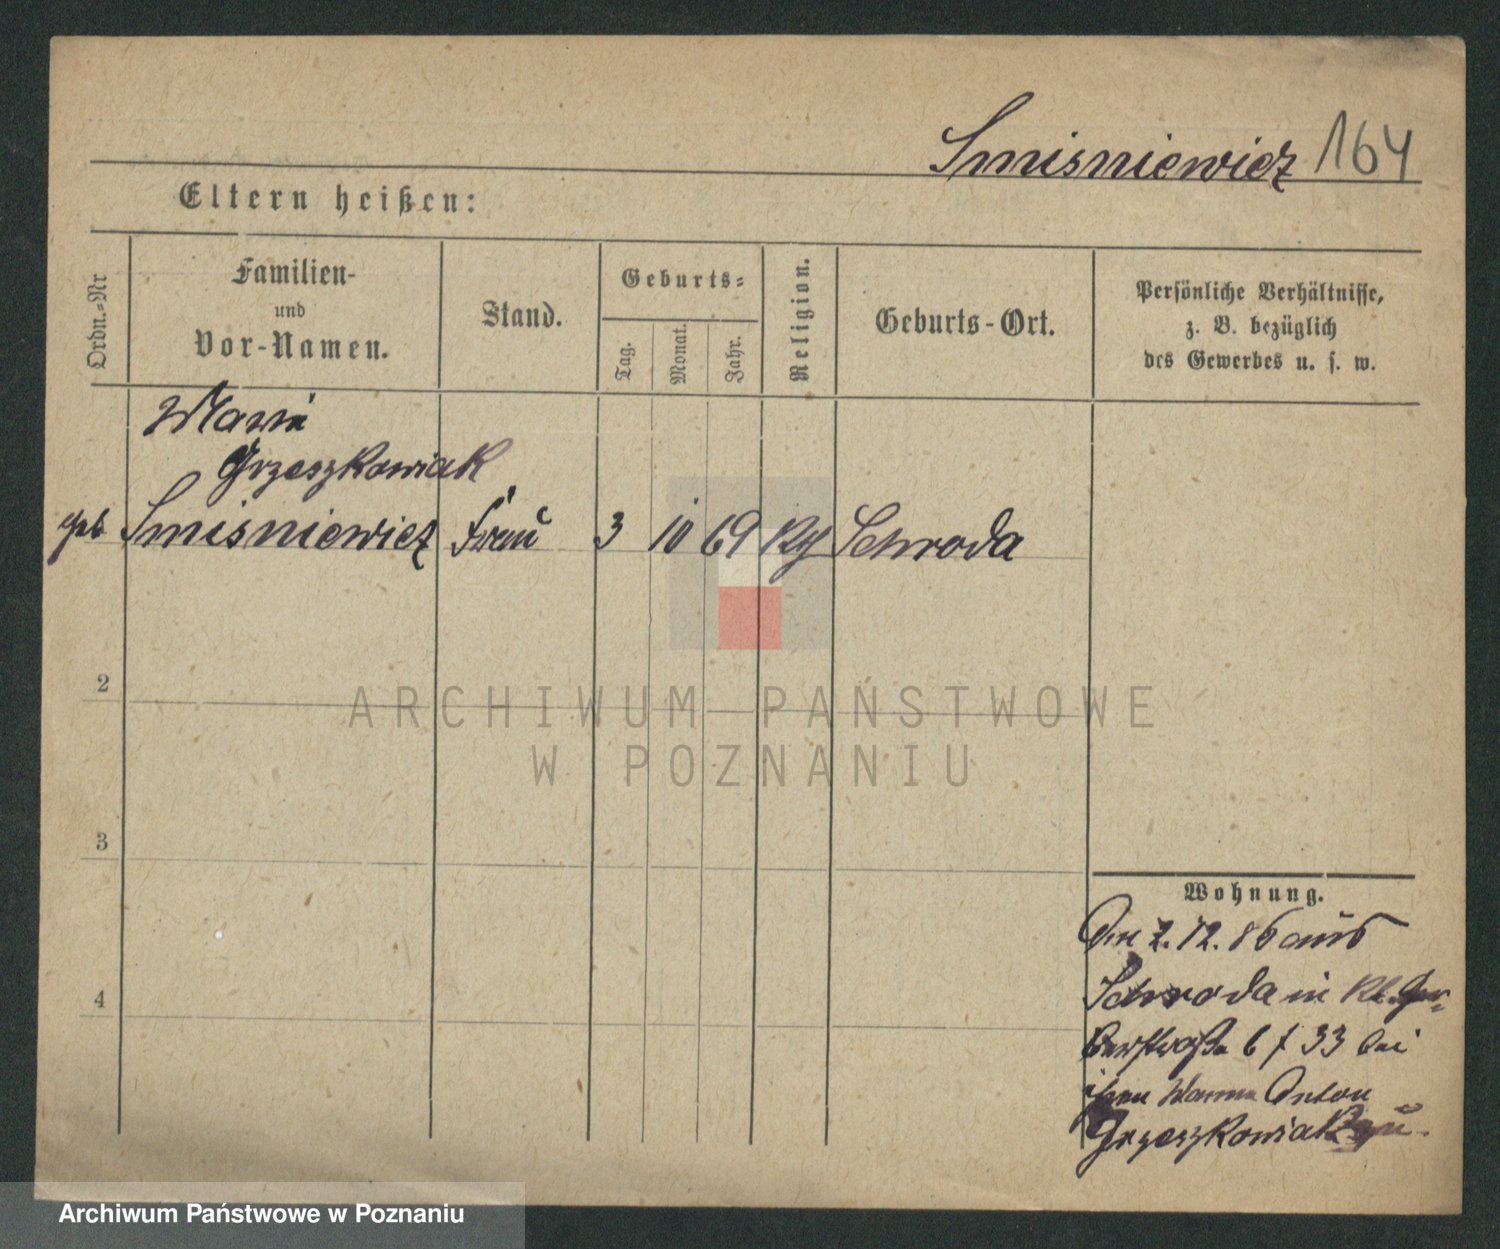 Smisniewicz 164
Eltern heißen:
Ordn.-Nr
Familien-
und
Vor-Namen.
Stand.
Geburts-
Tag.
Monat.
Jahr.
Religion.
Geburts-Ort.
Persönliche Verhältnisse,
z. B. bezüglich
des Gewerbes u. s. w.
Marie
Grzeszkowiak
geb Smisniewicz Frau 3 10 69 Schroda
2
3
4
Wohnung.
12. 86 aus
Schroda in Kl. Ger-
berstraße 6 / 33 bei
ihren Anton
Grzeszkowiak
ARCHIWUM PAŃSTWOWE
W POZNANIU
Archiwum Państwowe w Poznaniu